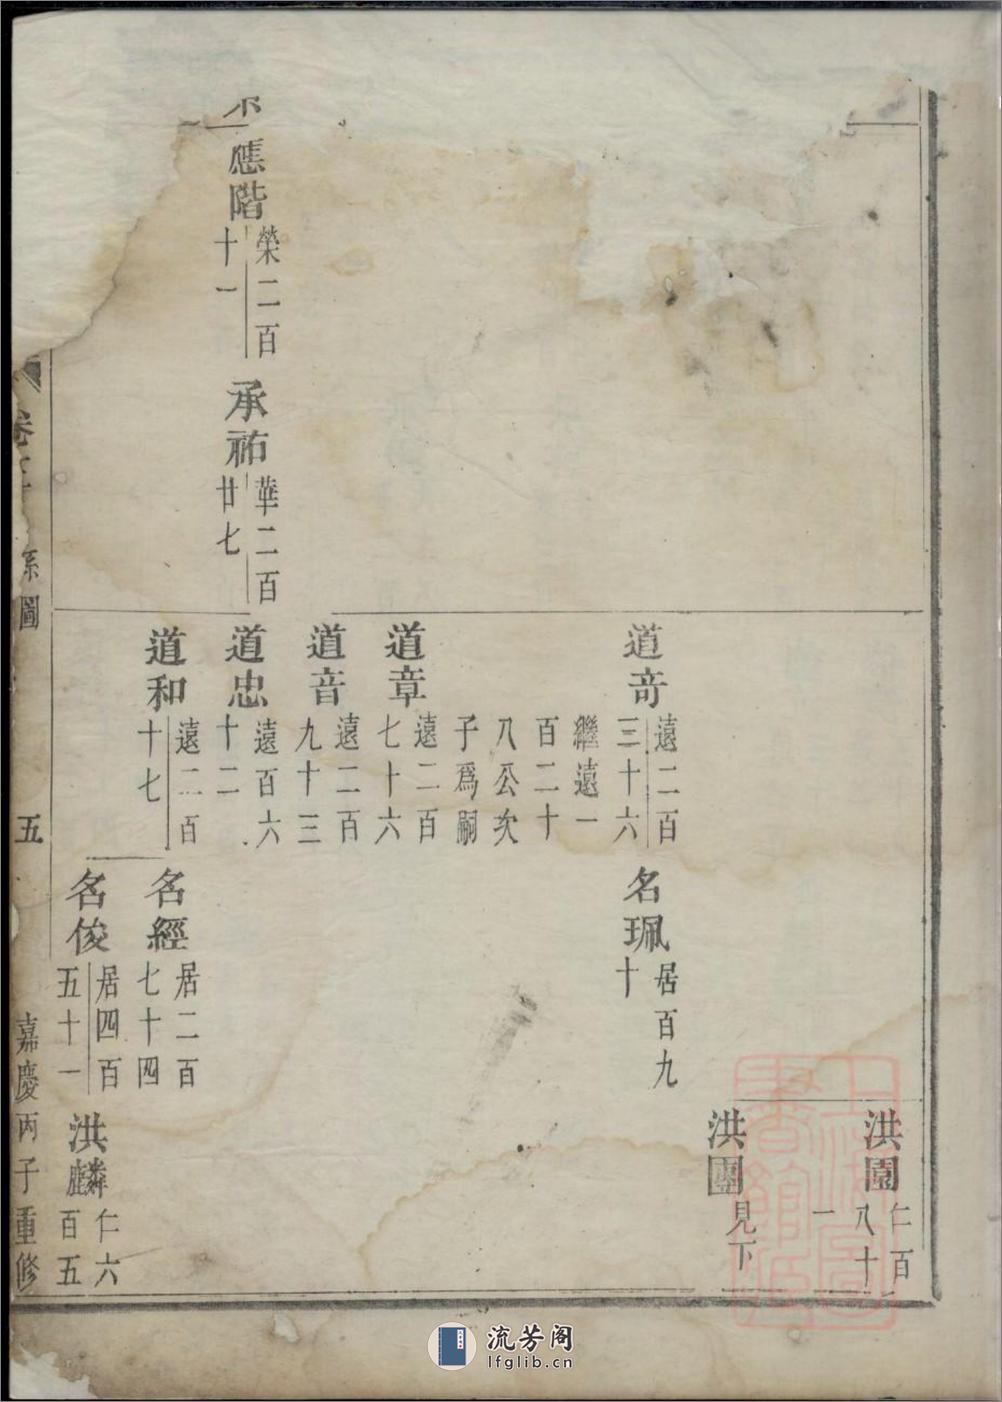 應階
榮二百
十一
承祐
華二百
廿七
洪園
仁百
八十
一
洪團
見下
道奇
遠二百
三十六
繼遠一
百二十
八公次
子爲嗣
名珮
居百九
十
道章
遠二百
七十六
道音
遠二百
九十三
道忠
遠百六
十二
道和
遠二百
十七
名經
居二百
七十四
名俊
居四百
五十一
洪麟
仁六
百五
卷
系圖
五
嘉慶丙子重修
上海圖書館藏
流芳阁
lfglib.cn